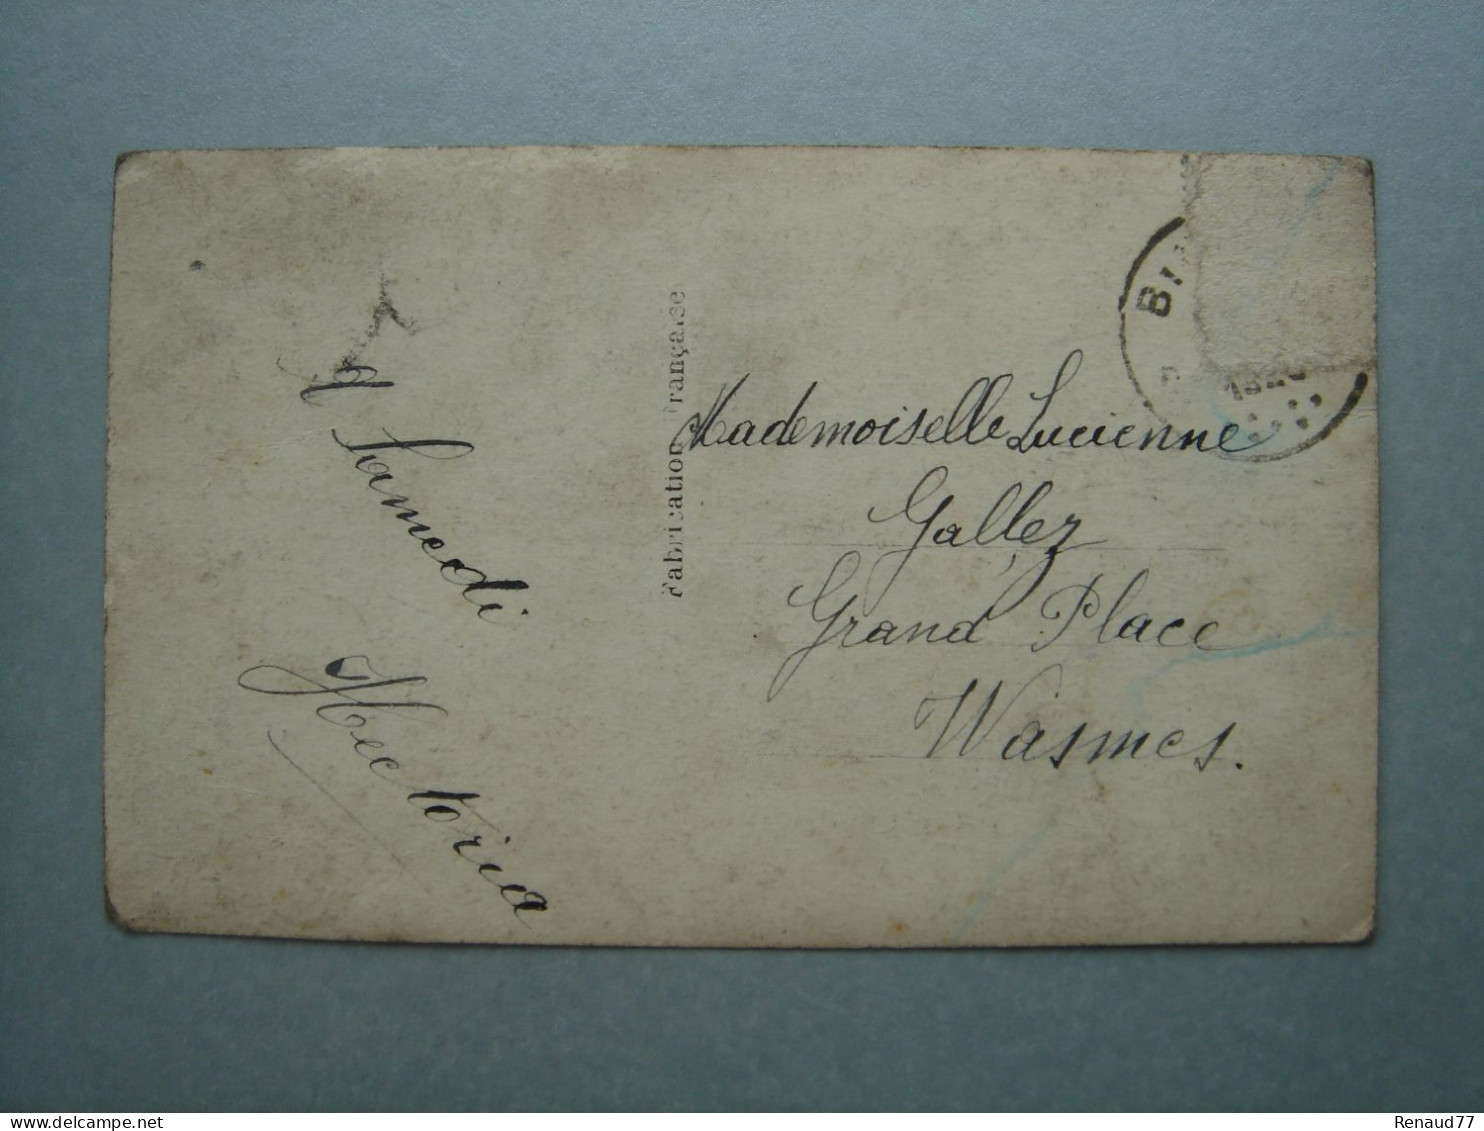 A Samedi
Hectoria
Fabrication française
Mademoiselle Lucienne
Gallez
Grand Place
Wasmes.
delcampe.net
Renaud77